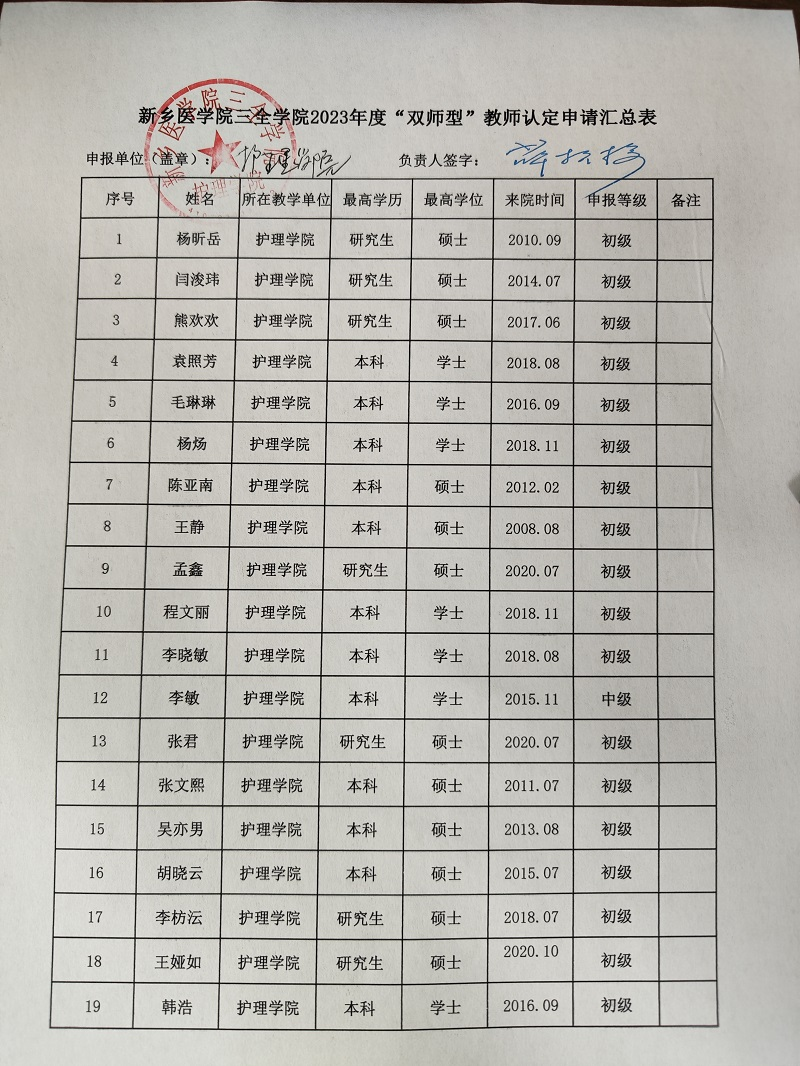 新乡医学院三全学院2023年度“双师型”教师认定申请汇总表
申报单位（盖章）：护理学院 负责人签字：
新乡医学院三全学院
护理学院
序号 姓名 所在教学单位 最高学历 最高学位 来院时间 申报等级 备注
1 杨昕岳 护理学院 研究生 硕士 2010.09 初级
2 闫浚玮 护理学院 研究生 硕士 2014.07 初级
3 熊欢欢 护理学院 研究生 硕士 2017.06 初级
4 袁照芳 护理学院 本科 学士 2018.08 初级
5 毛琳琳 护理学院 本科 学士 2016.09 初级
6 杨炀 护理学院 本科 学士 2018.11 初级
7 陈亚南 护理学院 本科 硕士 2012.02 初级
8 王静 护理学院 本科 硕士 2008.08 初级
9 孟鑫 护理学院 研究生 硕士 2020.07 初级
10 程文丽 护理学院 本科 学士 2018.11 初级
11 李晓敏 护理学院 本科 学士 2018.08 初级
12 李敏 护理学院 本科 学士 2015.11 中级
13 张君 护理学院 研究生 硕士 2020.07 初级
14 张文熙 护理学院 本科 硕士 2011.07 初级
15 吴亦男 护理学院 本科 硕士 2013.08 初级
16 胡晓云 护理学院 本科 硕士 2015.07 初级
17 李枋沄 护理学院 研究生 硕士 2018.07 初级
18 王娅如 护理学院 研究生 硕士 2020.10 初级
19 韩浩 护理学院 本科 学士 2016.09 初级